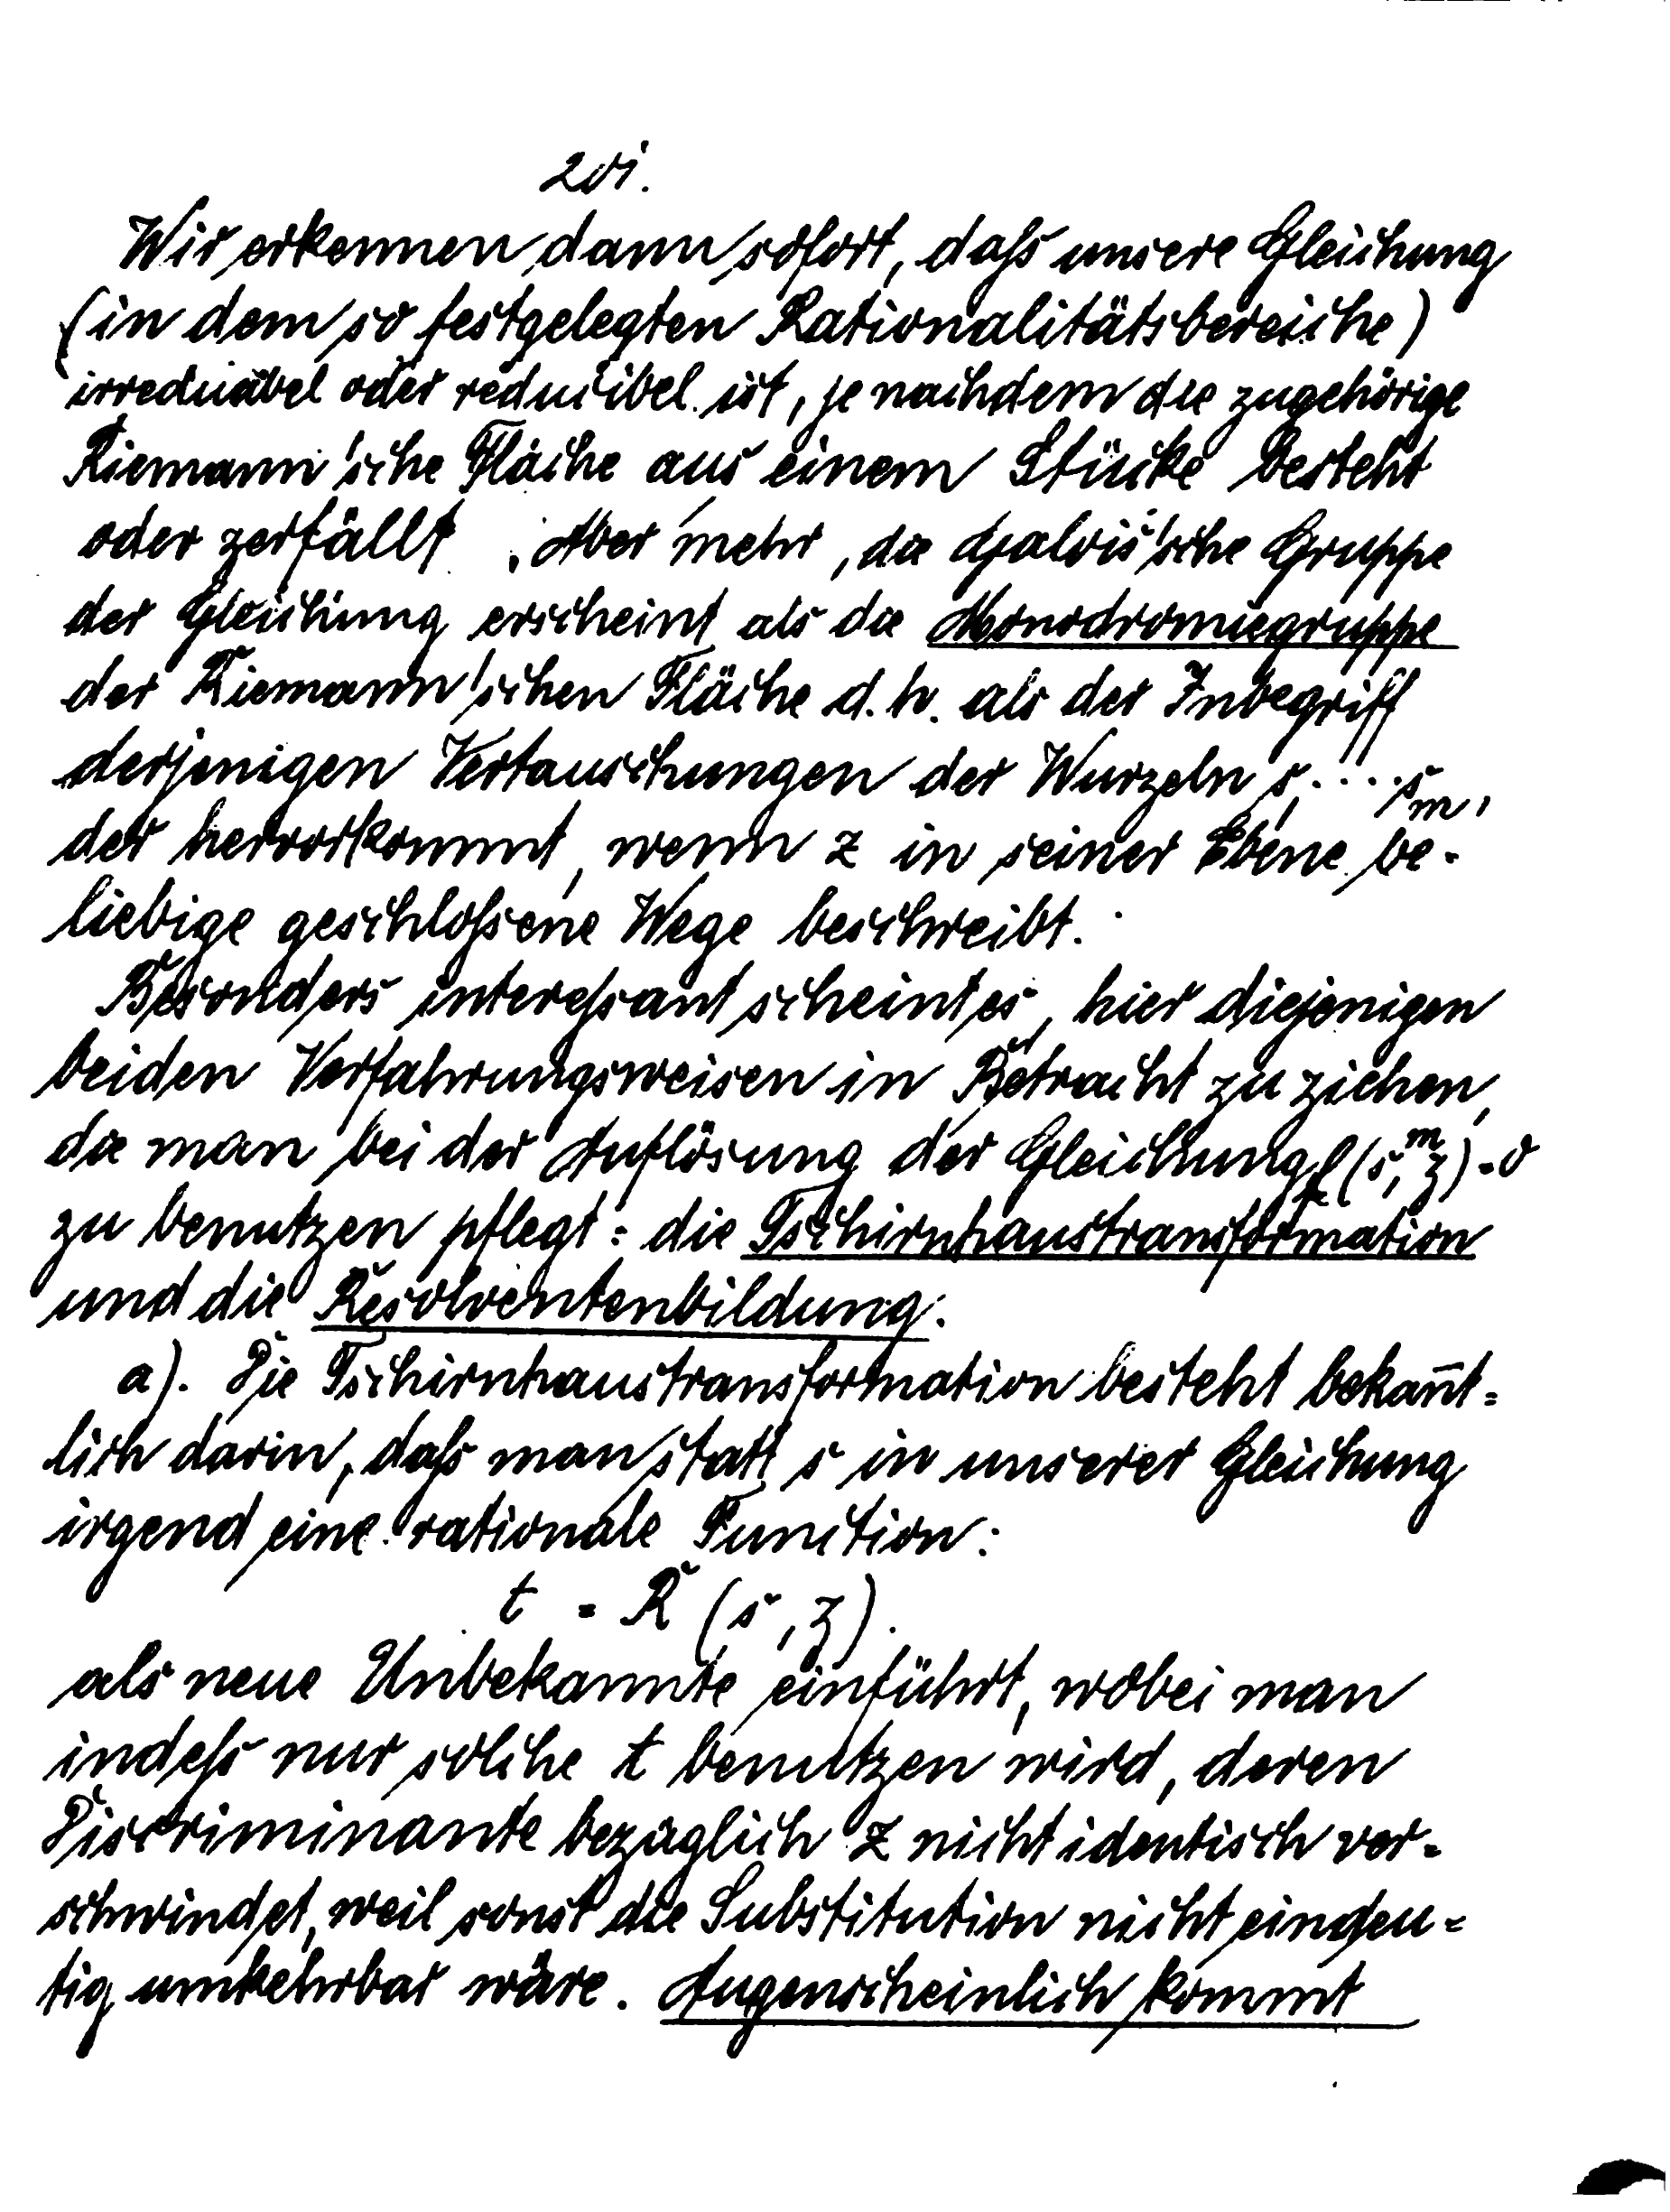 201.
Wir erkennen dann sofort, daß unsere Gleichung
(in dem so festgelegten Rationalitätsbereiche)
irreducibel oder reducibel ist, je nachdem die zugehörige
Riemann'sche Fläche aus einem Stücke besteht
oder zerfällt. Aber mehr, die Galois'sche Gruppe
der Gleichung erscheint als die Monodromiegruppe
der Riemann'schen Fläche d. h. als der Inbegriff
derjenigen Vertauschungen der Wurzeln s₁....sₘ,
der hervorkommt, wenn z in seiner Ebene be-
liebige geschloßene Wege beschreibt.
Besonders intereßant scheint es, hier diejenigen
beiden Verfahrungsweisen in Betracht zu ziehen,
die man bei der Auflösung der Gleichung f(s,ᵐ z) = 0
zu benutzen pflegt: die Tschirnhaustransformation
und die Resolventenbildung.
a). Die Tschirnhaustransformation besteht bekan̄t=
lich darin, daß man statt s in unserer Gleichung
irgend eine rationale Function:
t = R (s, z).
als neue Unbekannte einführt, wobei man
indeß nur solche t benutzen wird, deren
Discriminante bezüglich z nicht identisch ver=
schwindet, weil sonst die Substitution nicht eindeu=
tig umkehrbar wäre. Augenscheinlich kommt